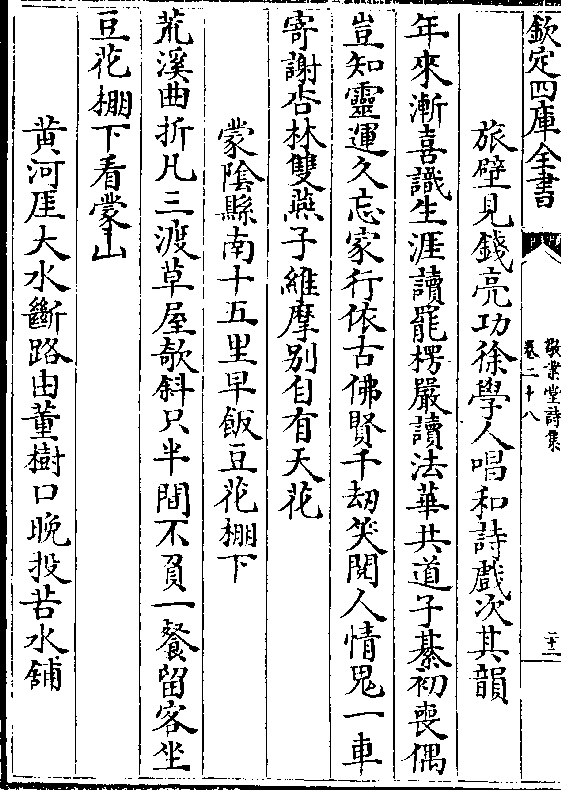 欽定四庫全書
敬業堂詩集
卷二十八
二十二
旅壁見錢亮功徐學人唱和詩戲次其韻
年來漸喜識生涯讀罷楞嚴讀法華共道子綦初喪偶
豈知靈運久忘家行依古佛賢千劫笑閱人情鬼一車
寄謝杏林雙燕子維摩別自有天花
蒙陰縣南十五里早飯豆花棚下
荒溪曲折凡三渡草屋欹斜只半間不負一餐留客坐
豆花棚下看蒙山
黄河厓大水斷路由董樹口晚投苦水舖